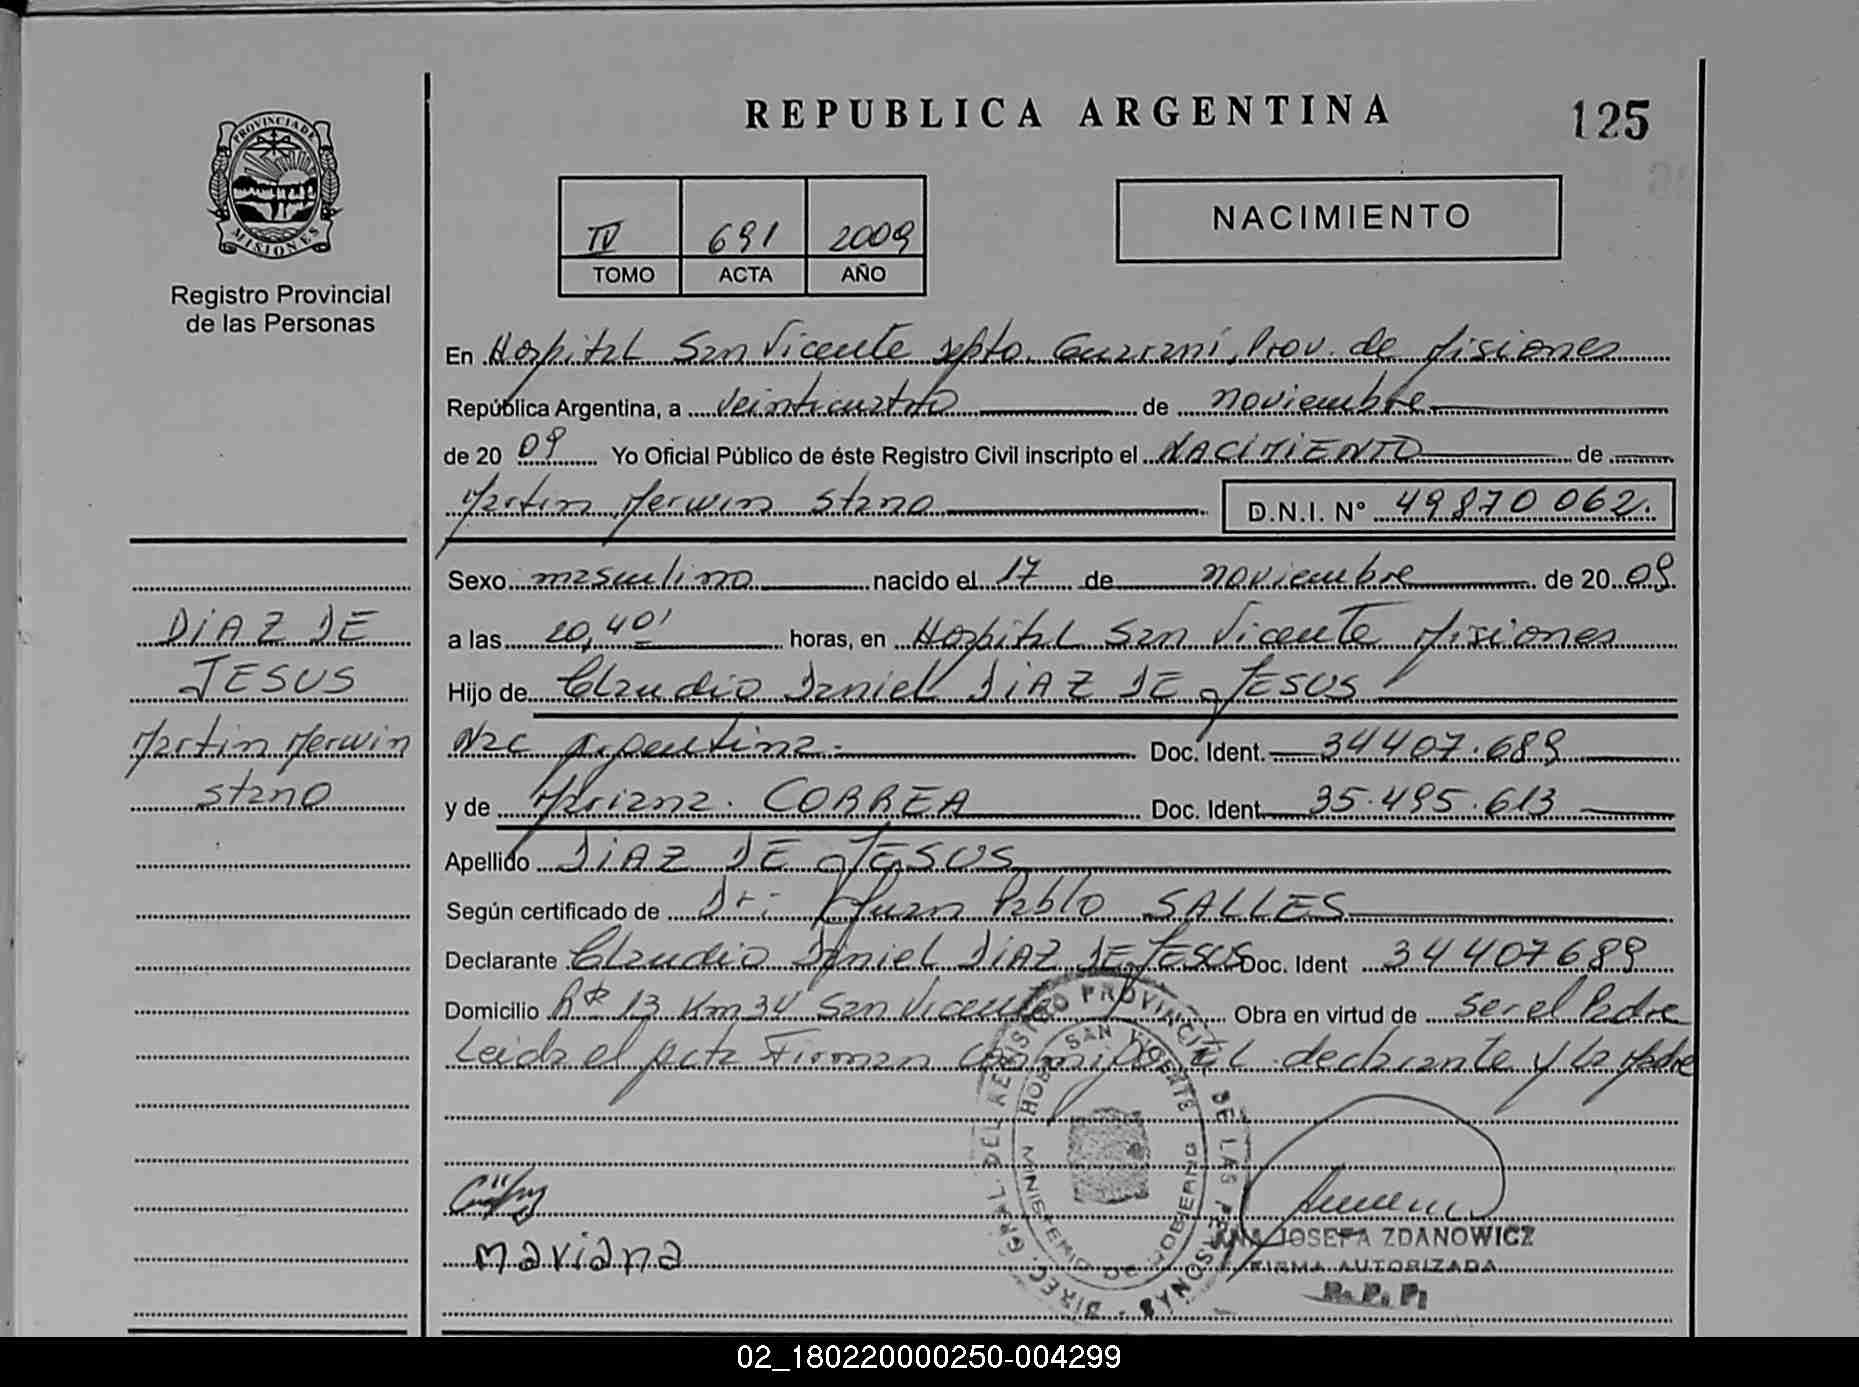 REPUBLICA ARGENTINA
125
PROVINCIA DE
MISIONES
Registro Provincial
de las Personas
IV 691 2009
TOMO ACTA AÑO
NACIMIENTO
En Hospital San Vicente Dpto. Guaraní, Prov. de Misiones
República Argentina, a veinticuatro de noviembre
de 2009 Yo Oficial Público de éste Registro Civil inscripto el NACIMIENTO de
Martin Merwin Stano D.N.I. Nº 49870062.
Sexo masculino nacido el 17 de noviembre de 2009
a las 20,40' horas, en Hospital San Vicente Misiones
Hijo de Claudio Daniel DIAZ DE JESUS
Nac Argentina. Doc. Ident. 34407.689
y de Mariana. CORREA Doc. Ident. 35.495.613
Apellido DIAZ DE JESUS
Según certificado de Dr: Juan Pablo SALLES
Declarante Claudio Daniel DIAZ DE JESUS Doc. Ident 34407689
Domicilio 13 Km 34 San Vicente Obra en virtud de ser el Padre
Leida el acta Firman conmigo el declarante y la Madre
DIAZ DE
JESUS
Martin Merwin
Stano
mariana
DIREC. GRAL. DEL REGISTRO PROVINCIAL DE LAS PERSONAS
HOSP. SAN VICENTE
MINISTERIO DE GOBIERNO
ANA JOSEFA ZDANOWICZ
FIRMA AUTORIZADA
R. P. P.
02_180220000250-004299